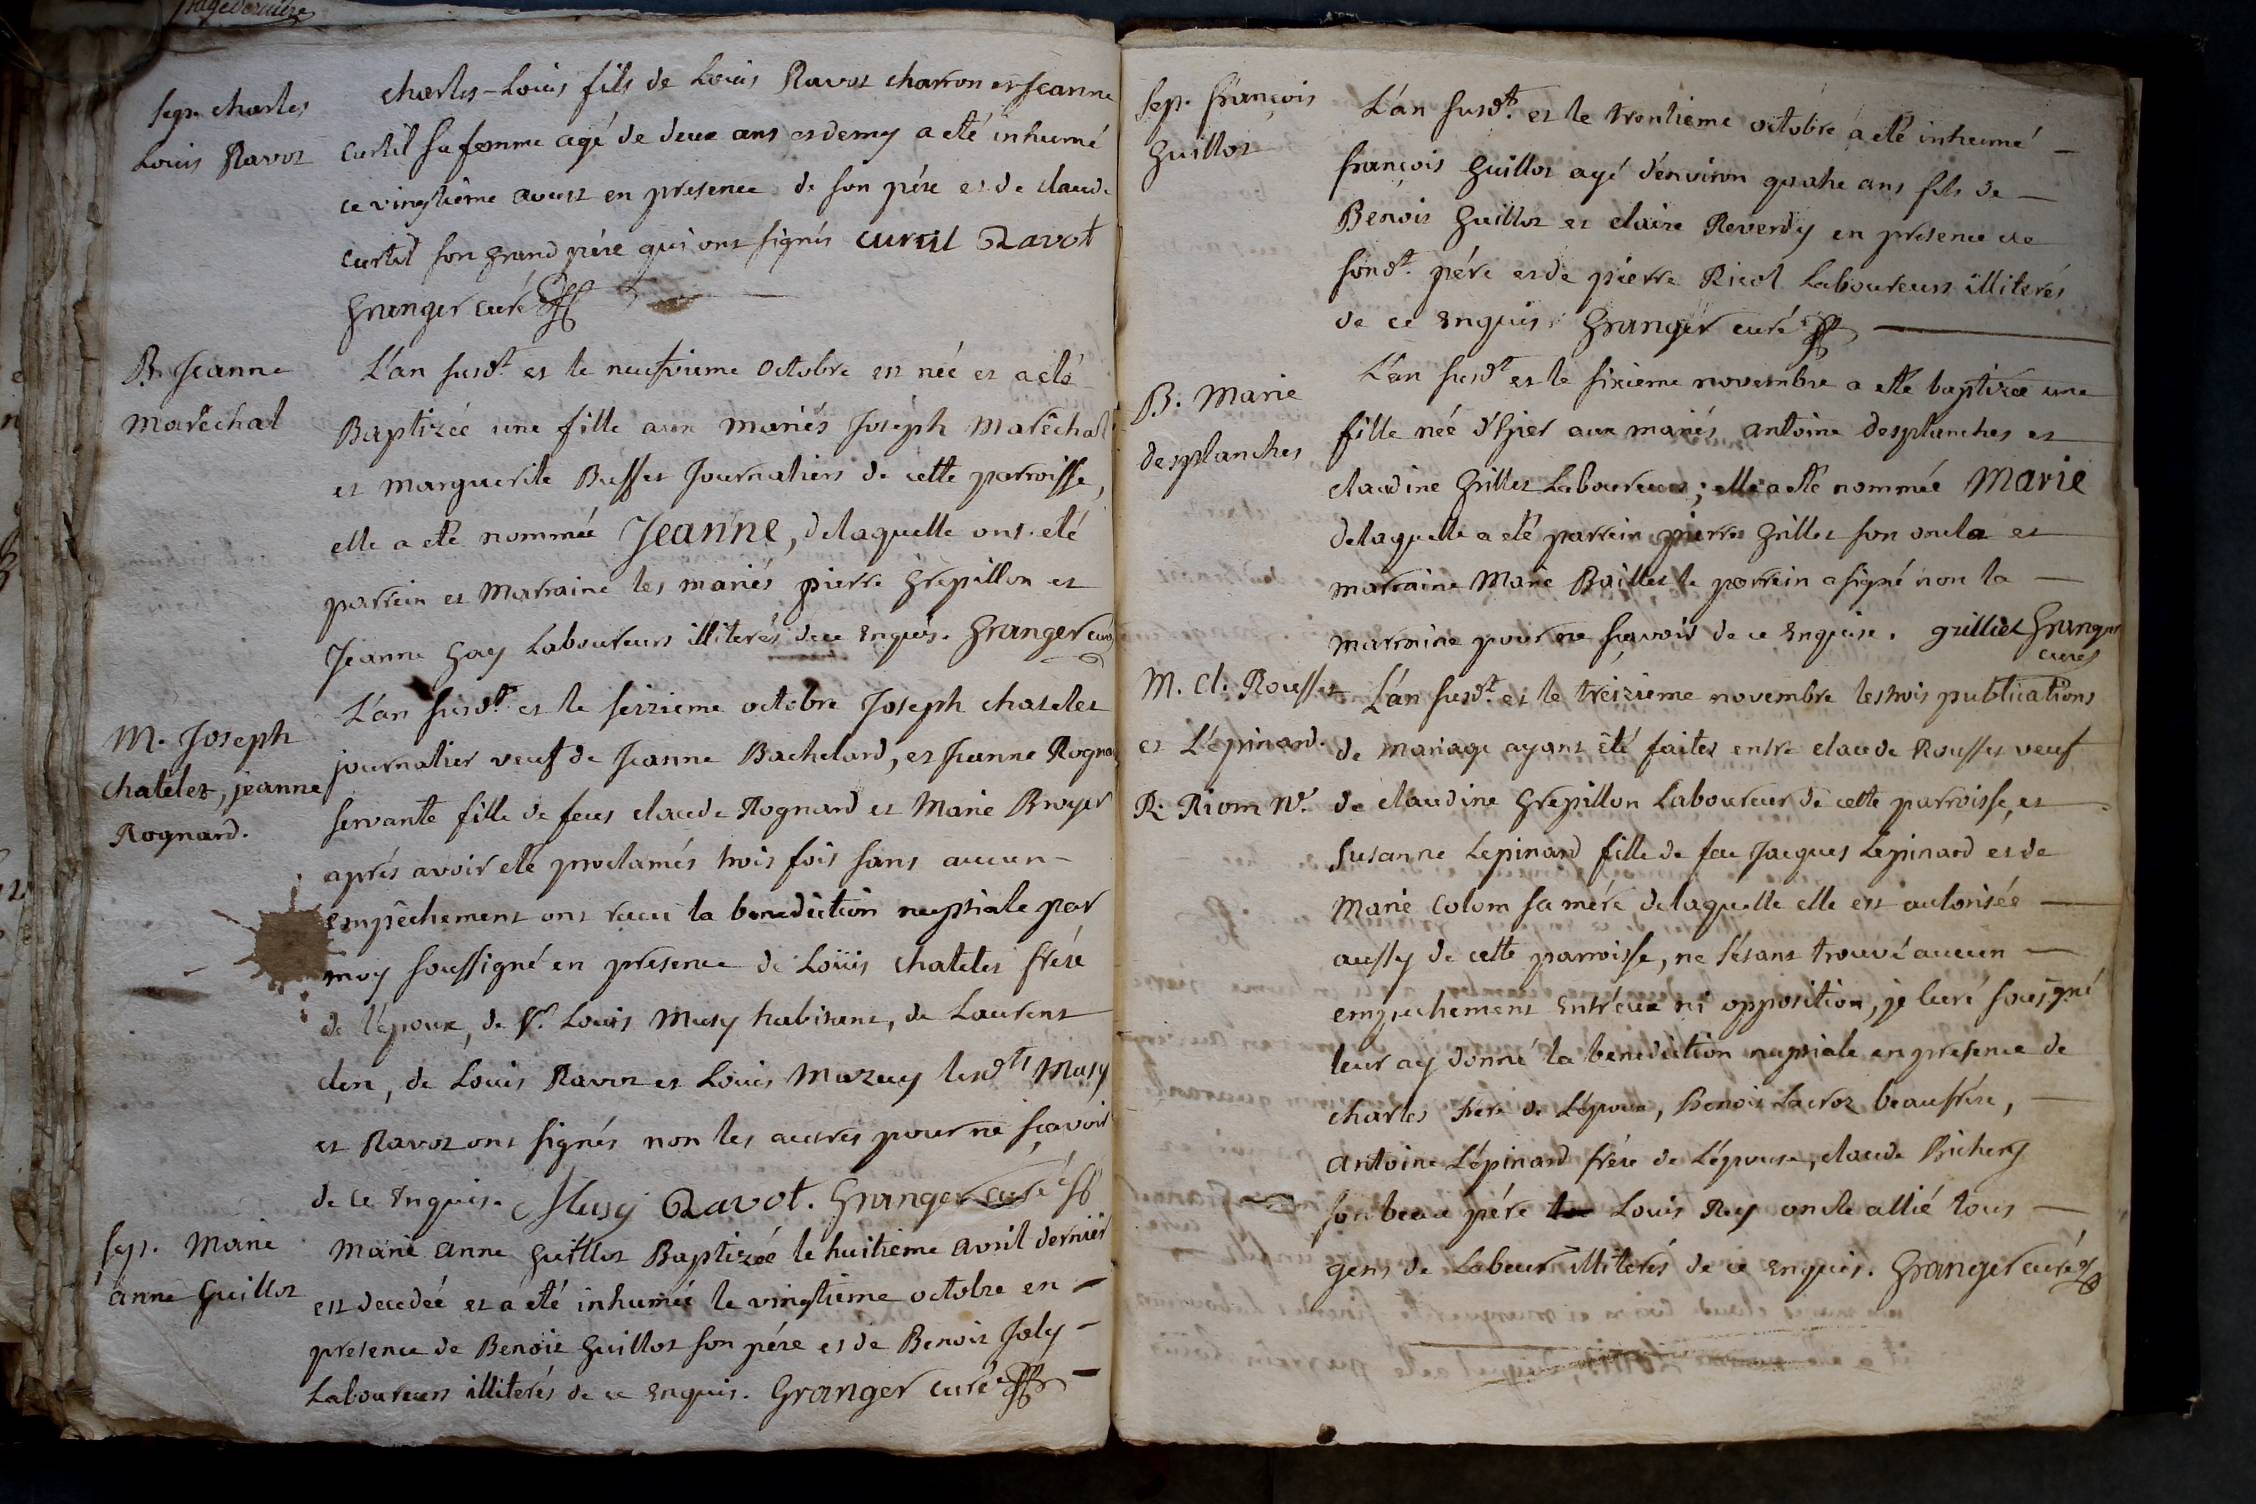 sep. charles
Louis Ravot
charles-Louis fils de Louis Ravot charron et Jeanne
curtil sa femme agé de deux ans et demy a eté inhumé
ce vingtième aoust en presence de son pére et de claude
curtil son grand pére qui ont signés curtil Ravot
Granger curé
B. Jeanne
Maréchal
L'an susdt. et le neufvieme octobre est née et a eté
Baptizée une fille aux mariés Joseph Maréchal
et Marguerite Buffet Journaliers de cette parroisse,
elle a eté nommée Jeanne, delaquelle ont eté
parrein et Marraine les mariés pierre Grepillon et
Jeanne Gay Laboureurs illiterés de ce Enquis. Granger curé
M. Joseph
chatelet, jeanne
Rognard.
L'an susdt. et le seizieme octobre Joseph chatelet
journalier veuf de Jeanne Bachelard, et Jeanne Rognard
servante fille de feus claude Rognard et Marie Broyer
aprés avoir eté proclamés trois fois sans aucun
empêchement ont recu la benediction nuptiale par
moy soussigné en presence de Loüis chatelet frére
de l'époux, de Sr. Louis Musy habitant, de Laurent
clere, de Louis Ravot et Louis Mazuy lesdts Musy
et Ravot ont signés non les autres pour ne sçavoir
de ce Enquis. Musy Ravot. Granger curé
sep. Marie
anne Guillot
Marie anne Guillot Baptizée le huitieme avril dernier
est decedée et a eté inhumée le vingtieme octobre en
presence de Benoit Guillot son pére et de Benoit Joly
Laboureurs illiterés de ce enquis. Granger curé
sep. françois
Guillot
L'an susdt. et le trentieme octobre a eté inhumé
françois Guillot agé d'environ quatre ans fils de
Benoit Guillot et claire Reverdy en presence de
sondt. pére et de pierre Ricol Laboureurs illiterés
de ce Enquis. Granger curé
B. Marie
desplanches
L'an susdt et le sixieme novembre a eté baptizée une
fille née d'hier aux mariés antoine desplanches et
claudine Grillet Laboureurs; elle a eté nommée Marie
delaquelle a eté parrein pierre Grillet son oncle et
marraine Marie Baillet le parrein a signé non la
marraine pour ne sçavoir de ce Enquise. grilliet Granger
curé
M. cl. Rousset
et L'épinard.
R. Riom Nre.
L'an susdt. et le treizieme novembre les trois publications
de mariage ayant été faites entre claude Rousset veuf
de claudine Grepillon Laboureur de cette parroisse, et
susanne Lépinard fille de feu Jacques Lépinard et de
Marie colom sa mére delaquelle elle est autorisée
aussy de cette parroisse, ne s'étant trouvé aucun
empechement Entr'eux ni opposition, je curé sousigné
leur ay donné la benediction nuptiale en presence de
charles frére de L'époux, Benoit Lacroz beaufrére,
antoine L'épinard frére de L'épouse, claude Bichery
son beau pére Louis Rey oncle allié tous
gens de Labeur illiterés de ce enquis. Granger curé